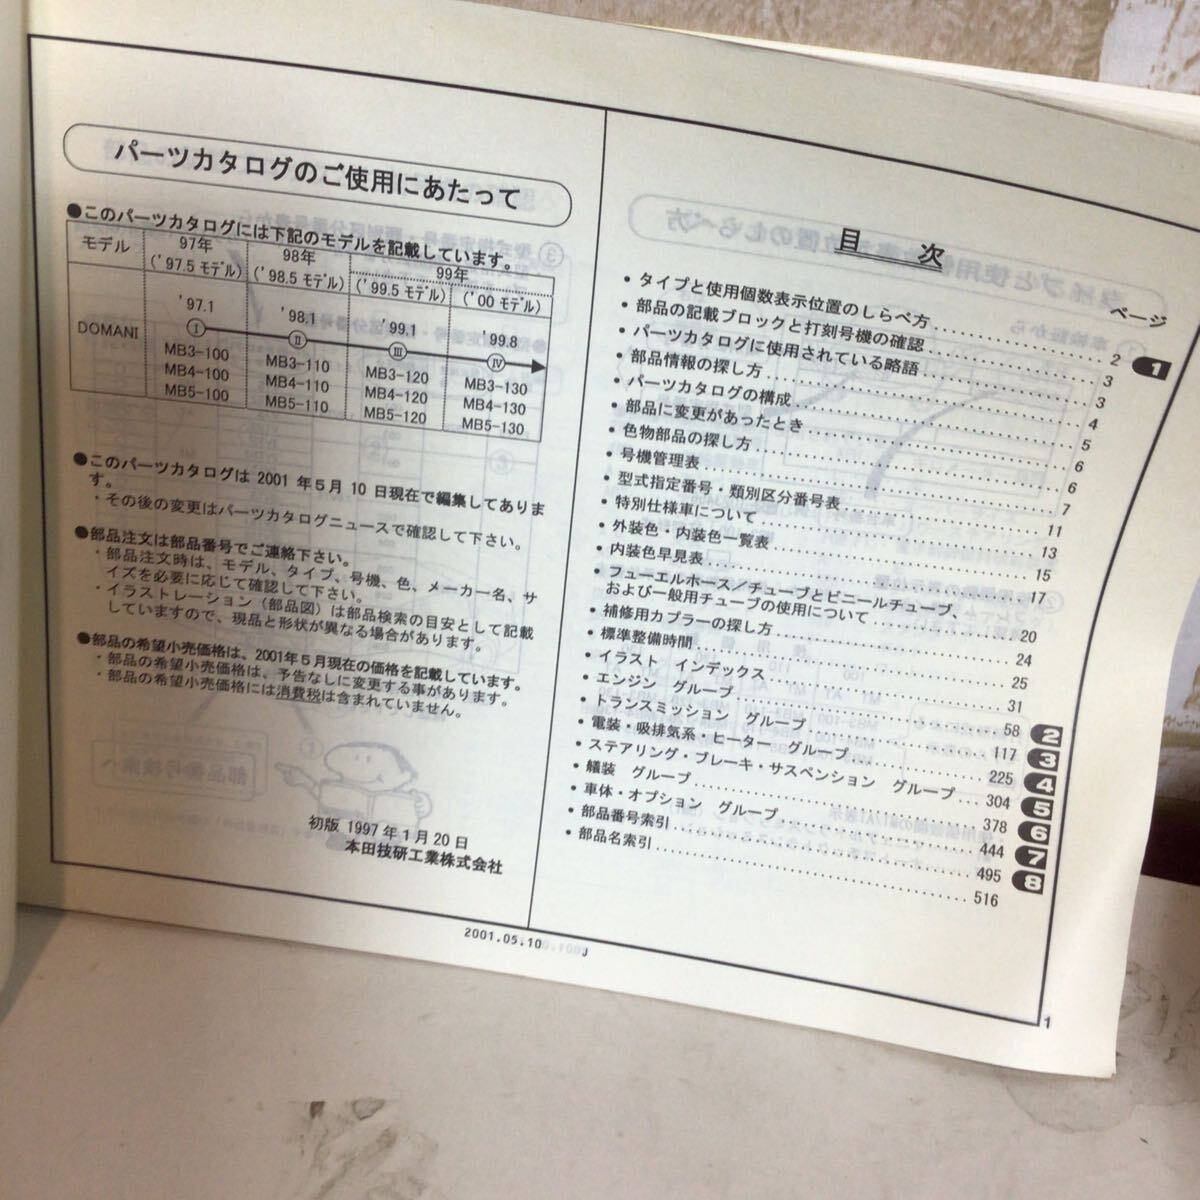 パーツカタログのご使用にあたって
●このパーツカタログには下記のモデルを記載しています。
モデル 97年 98年 99年
('97.5 モデル) ('98.5 モデル) ('99.5 モデル) ('00 モデル)
DOMANI '97.1 '98.1 '99.1 '99.8
Ⅰ Ⅱ Ⅲ Ⅳ
MB3-100 MB3-110 MB3-120 MB3-130
MB4-100 MB4-110 MB4-120 MB4-130
MB5-100 MB5-110 MB5-120 MB5-130
●このパーツカタログは 2001 年 5 月 10 日現在で編集してありま
す。
・その後の変更はパーツカタログニュースで確認して下さい。
●部品注文は部品番号でご連絡下さい。
・部品注文時は、モデル、タイプ、号機、色、メーカー名、サ
イズを必要に応じて確認して下さい。
・イラストレーション(部品図)は部品検索の目安として記載
していますので、現品と形状が異なる場合があります。
●部品の希望小売価格は、2001年5月現在の価格を記載しています。
・部品の希望小売価格は、予告なしに変更する事があります。
・部品の希望小売価格には消費税は含まれていません。
初版 1997 年 1 月 20 日
本田技研工業株式会社
目 次
ページ
・タイプと使用個数表示位置のしらべ方 2 1
・部品の記載ブロックと打刻号機の確認 3
・パーツカタログに使用されている略語 3
・部品情報の探し方 4
・パーツカタログの構成 5
・部品に変更があったとき 6
・色物部品の探し方 6
・号機管理表 7
・型式指定番号・類別区分番号表 11
・特別仕様車について 13
・外装色・内装色一覧表 15
・内装色早見表 17
・フューエルホース/チューブとビニールチューブ、
および一般用チューブの使用について 20
・補修用カプラーの探し方 24
・標準整備時間 25
・イラスト インデックス 31
・エンジン グループ 58 2
・トランスミッション グループ 117 3
・電装・吸排気系・ヒーター グループ 225 4
・ステアリング・ブレーキ・サスペンション グループ 304 5
・艤装 グループ 378 6
・車体・オプション グループ 444 7
・部品番号索引 495 8
・部品名索引 516
2001.05.10 J
1